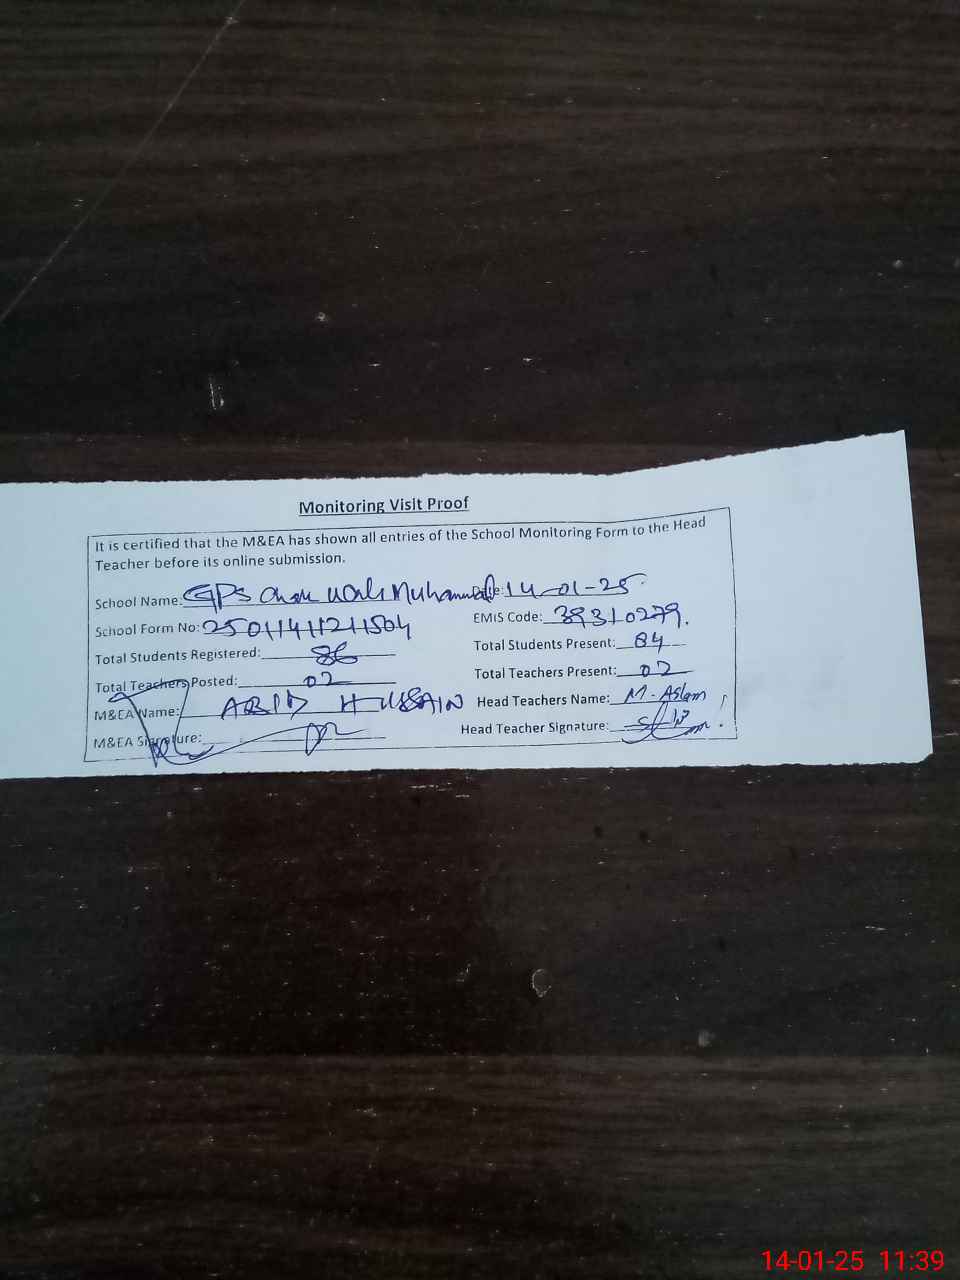 Monitoring Visit Proof
It is certified that the M&EA has shown all entries of the School Monitoring Form to the Head
Teacher before its online submission.
School Name: GPS Chak Wali Muhammad Date: 14-01-25
School Form No: EMIS Code: 39310279.
Total Students Registered: 86 Total Students Present: 84
Total Teachers Posted: 02 Total Teachers Present: 02
M&EA Name: ABID HUSSAIN Head Teachers Name: M. Aslam
M&EA Signature: Head Teacher Signature:
14-01-25 11:39